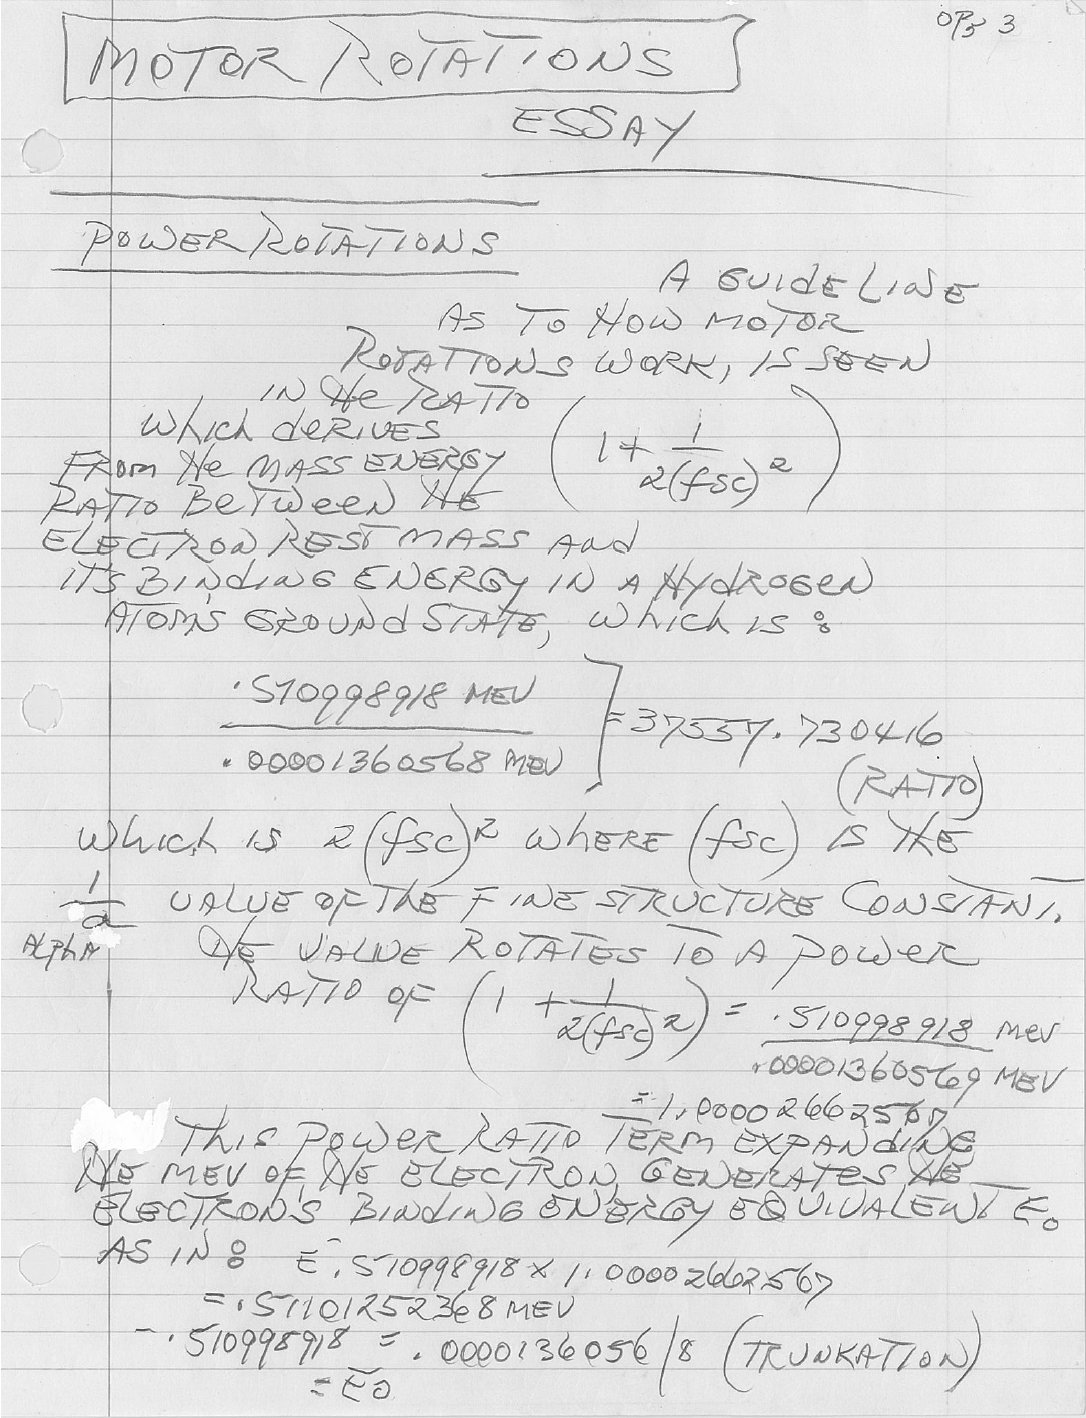 OP5 3
MOTOR ROTATIONS
ESSAY
POWER ROTATIONS
A GUIDELINE
AS TO HOW MOTOR
ROTATIONS WORK, IS SEEN
IN THE RATIO
WHICH DERIVES (1 + 1/2(fsc)²)
FROM THE MASS ENERGY
RATIO BETWEEN THE
ELECTRON REST MASS AND
IT'S BINDING ENERGY IN A HYDROGEN
ATOM'S GROUND STATE, WHICH IS :
.510998918 MEV
.00001360568 MEV ] = 37557.730416
(RATIO)
WHICH IS 2(fsc)² WHERE (fsc) IS THE
1/a VALUE OF THE FINE STRUCTURE CONSTANT.
ALPHA THE VALUE ROTATES TO A POWER
RATIO OF (1 + 1/2(fsc)²) = .510998918 MEV
.00001360569 MEV
= 1.00002662567
THIS POWER RATIO TERM EXPANDING
THE MEV OF THE ELECTRON, GENERATES THE
ELECTRON'S BINDING ENERGY EQUIVALENT E₀
AS IN : E⁻ .510998918 X 1.00002662567
= .51101252368 MEV
- .510998918 = .0000136056/8 (TRUNKATION)
= E₀